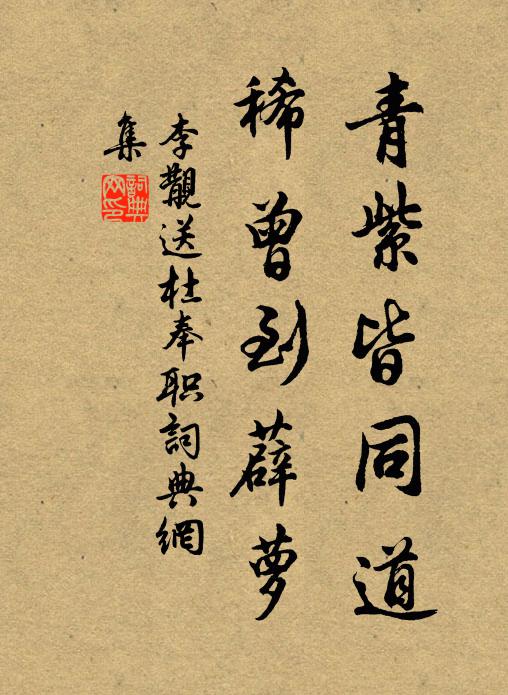 青紫皆同道
稀曾到薜萝
李觏送杜奉职詞典網
集
詞典
网印